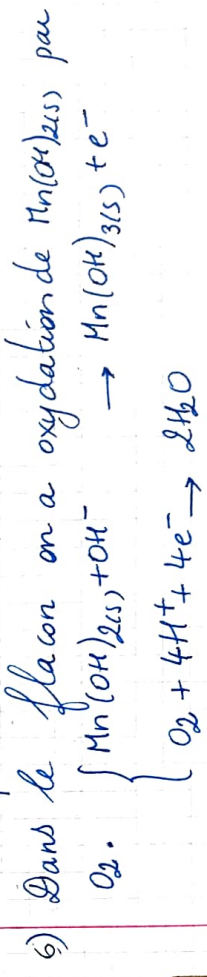 6) Dans le flacon on a oxydation de Mn(OH)2(s) par
O2. { Mn(OH)2(s) + OH⁻ → Mn(OH)3(s) + e⁻
O2 + 4H⁺ + 4e⁻ → 2H2O